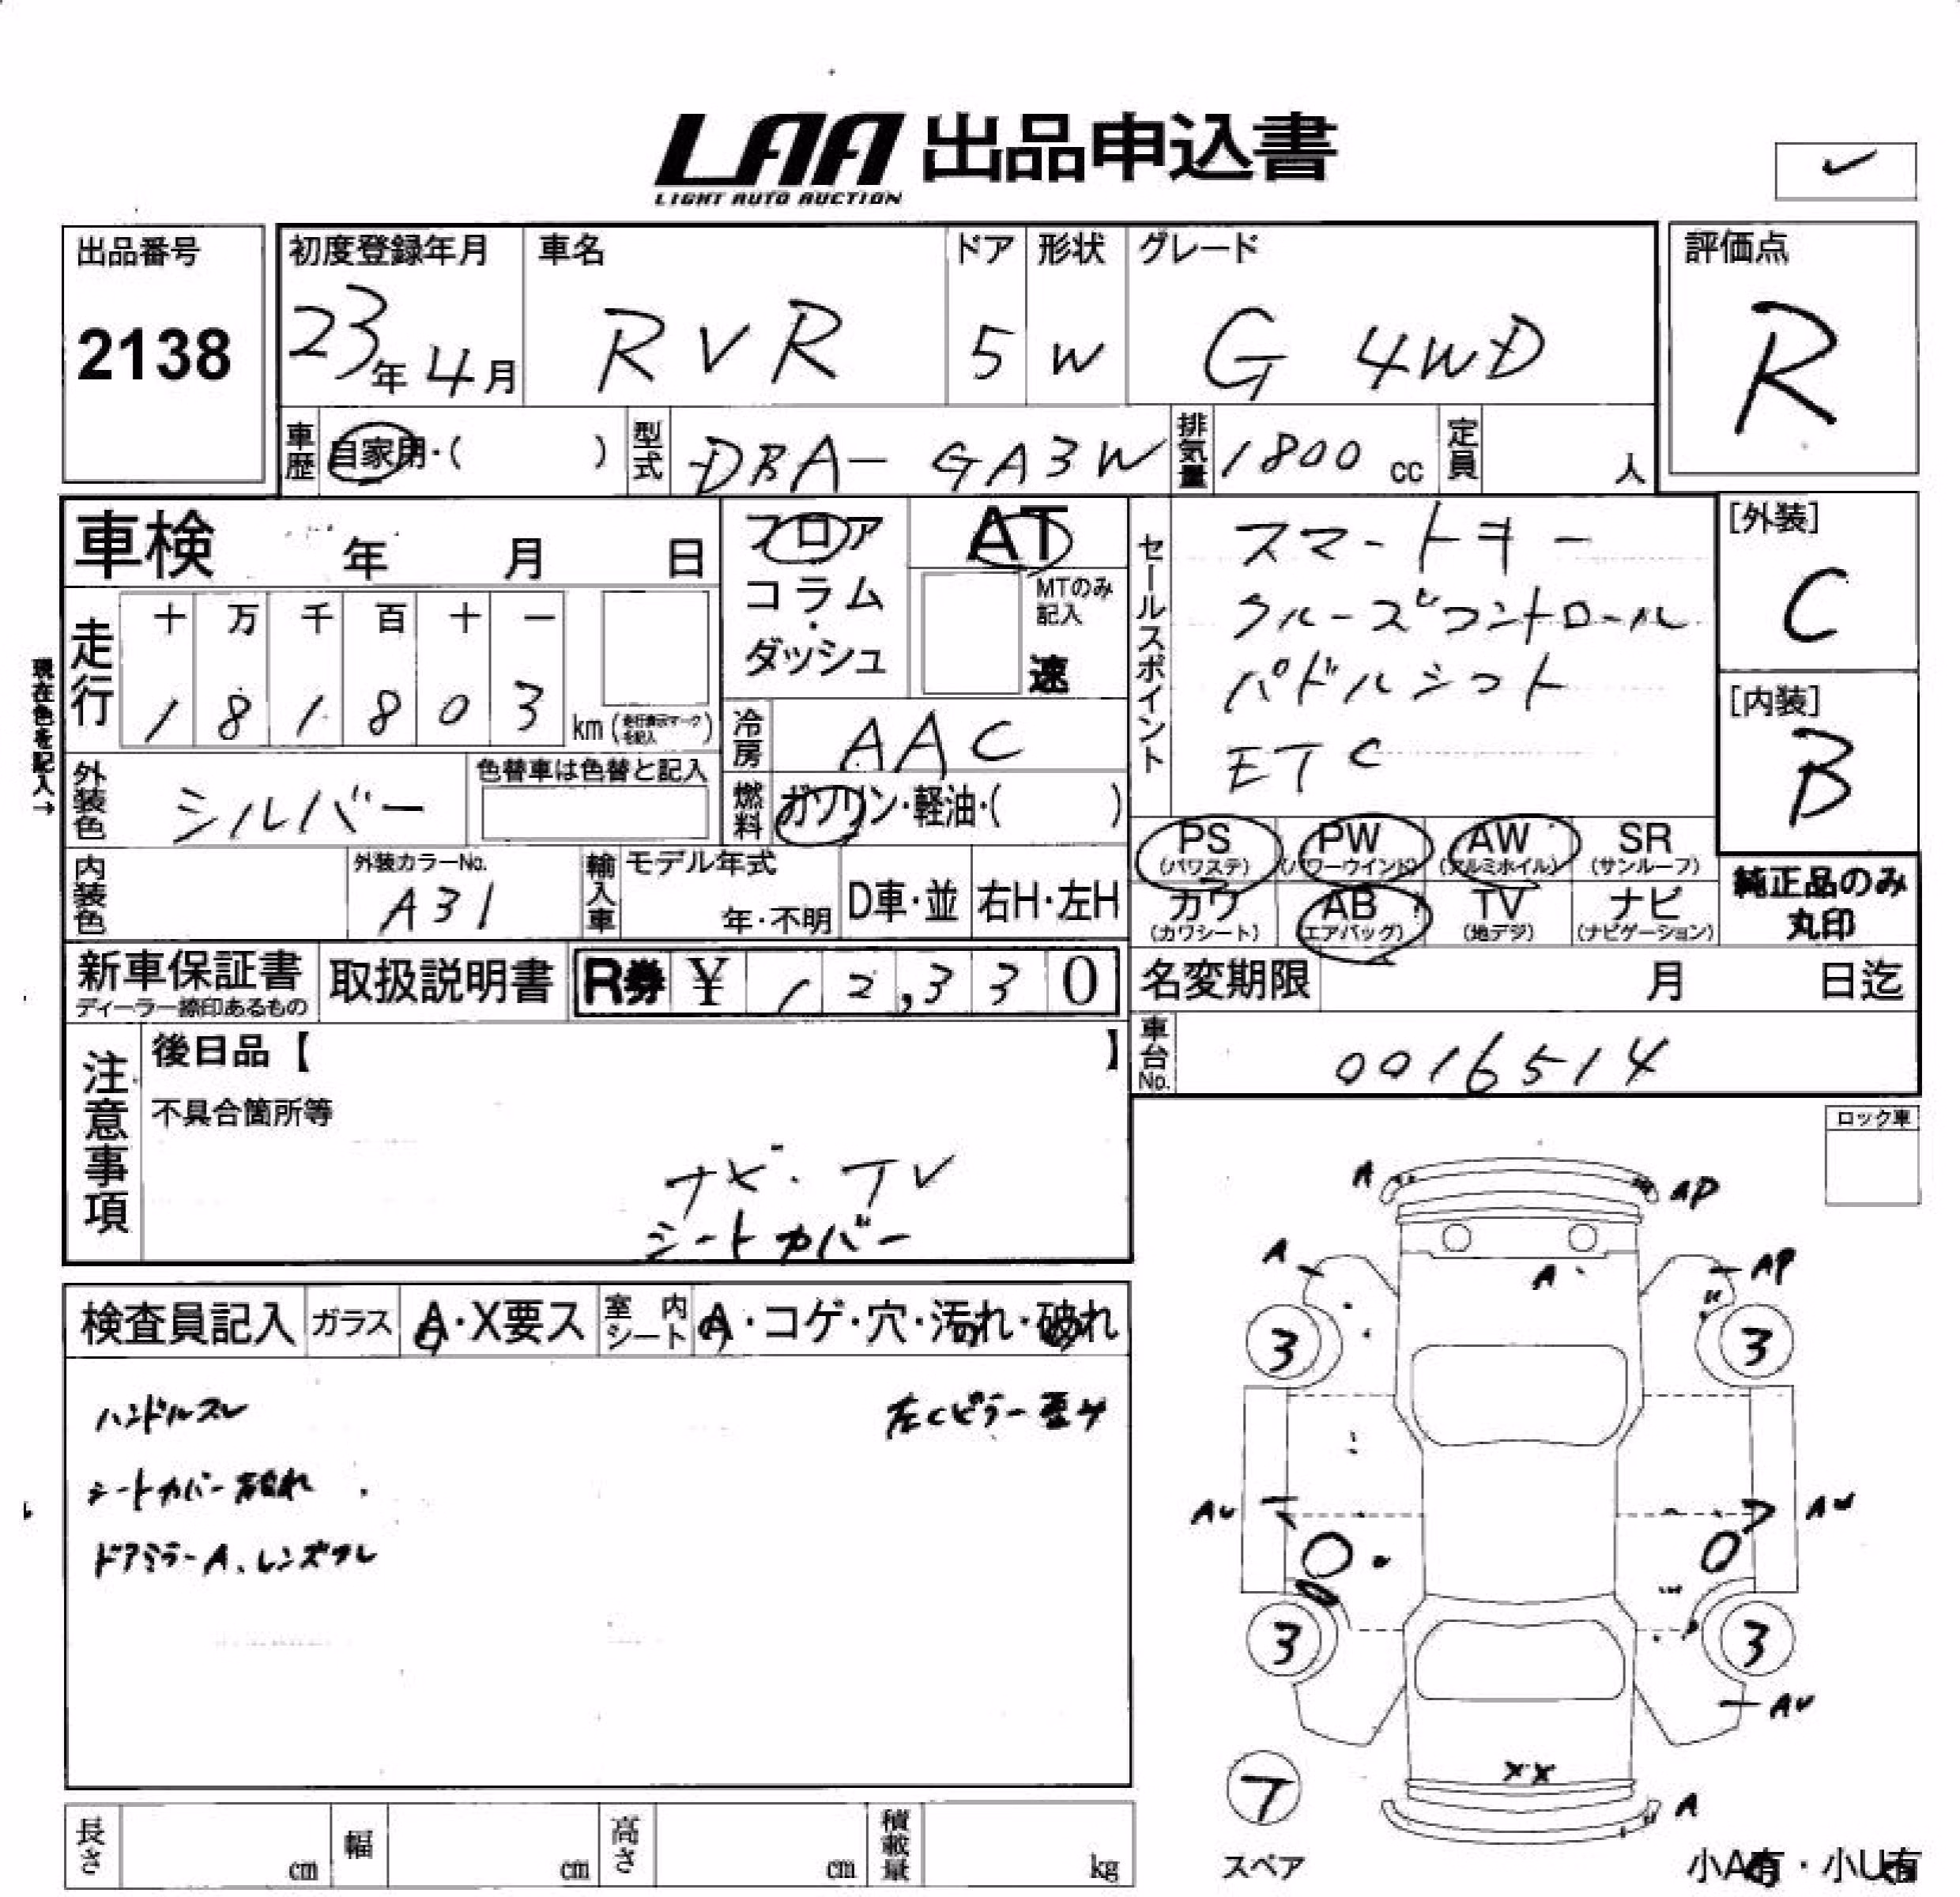 LAA 出品申込書
LIGHT AUTO AUCTION
出品番号
2138
初度登録年月
23年4月
車名
RVR
ドア
5
形状
W
グレード
G 4WD
評価点
R
車歴
自家用・( )
型式
DBA-GA3W
排気量
1800 cc
定員
人
車検 年 月 日
現在色を記入→
走行
十 万 千 百 十 一
1 8 1 8 0 3 km (走行表示マークを記入)
フロア
コラム
・
ダッシュ
AT
MTのみ
記入
速
冷房
AAC
燃料
ガソリン・軽油・( )
セールスポイント
スマートキー
クルーズコントロール
パドルシフト
ETC
[外装]
C
[内装]
B
外装色
シルバー
色替車は色替と記入
PS (パワステ)
PW (パワーウインド)
AW (アルミホイル)
SR (サンルーフ)
カワ (カワシート)
AB (エアバッグ)
TV (地デジ)
ナビ (ナビゲーション)
純正品のみ
丸印
内装色
外装カラーNo.
A31
輸入車
モデル年式
年・不明
D車・並
右H・左H
新車保証書
ディーラー捺印あるもの
取扱説明書
R券 ¥ 12,330
名変期限 月 日迄
車台No.
0016514
注意事項
後日品【 】
不具合箇所等
ナビ・TV
シートカバー
ロック車
検査員記入
ガラス
A・X要ス
室内シート
A・コゲ・穴・汚れ・破れ
ハンドルスレ
左Cピラー歪み
シートカバー破れ
ドアミラーA、レンズワレ
A
AP
A
A
AP
3
3
AU
AU
3
3
AU
XX
A
T
スペア
小A有・小U有
長さ cm
幅 cm
高さ cm
積載量 kg